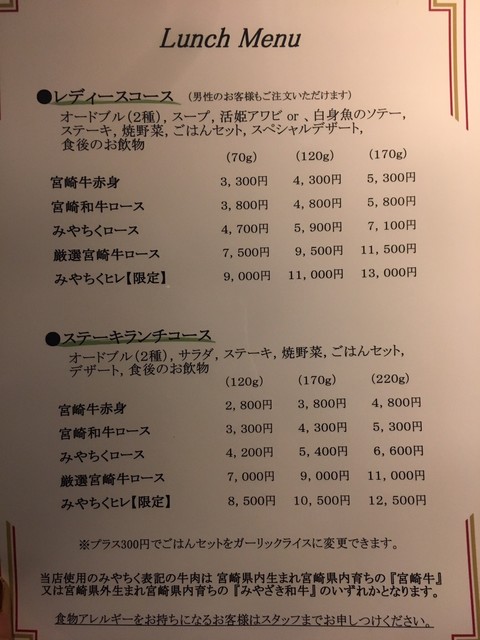 Lunch Menu
●レディースコース (男性のお客様もご注文いただけます)
オードブル(2種), スープ, 活姫アワビ or 、白身魚のソテー,
ステーキ, 焼野菜, ごはんセット, スペシャルデザート,
食後のお飲物
(70g) (120g) (170g)
宮崎牛赤身 3,300円 4,300円 5,300円
宮崎和牛ロース 3,800円 4,800円 5,800円
みやちくロース 4,700円 5,900円 7,100円
厳選宮崎牛ロース 7,500円 9,500円 11,500円
みやちくヒレ【限定】 9,000円 11,000円 13,000円
●ステーキランチコース
オードブル(2種), サラダ, ステーキ, 焼野菜, ごはんセット,
デザート, 食後のお飲物
(120g) (170g) (220g)
宮崎牛赤身 2,800円 3,800円 4,800円
宮崎和牛ロース 3,300円 4,300円 5,300円
みやちくロース 4,200円 5,400円 6,600円
厳選宮崎牛ロース 7,000円 9,000円 11,000円
みやちくヒレ【限定】 8,500円 10,500円 12,500円
※プラス300円でごはんセットをガーリックライスに変更できます。
当店使用のみやちく表記の牛肉は 宮崎県内生まれ宮崎県内育ちの『宮崎牛』
又は宮崎県外生まれ宮崎県内育ちの『みやざき和牛』のいずれかとなります。
食物アレルギーをお持ちになるお客様はスタッフまでお申しつけください。